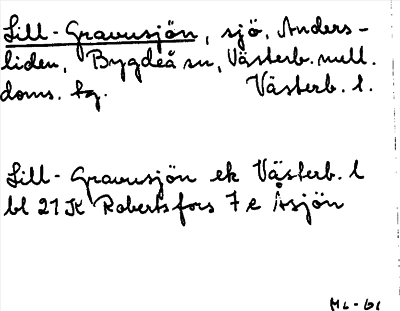 Lill-Gravusjön, sjö, Anders-
liden, Bygdeå sn, Västerb. mell.
doms. tg. Västerb. l.
Lill-Gravusjön ek Västerb. l
bl 21 K Robertsfors 7 e Åsjön